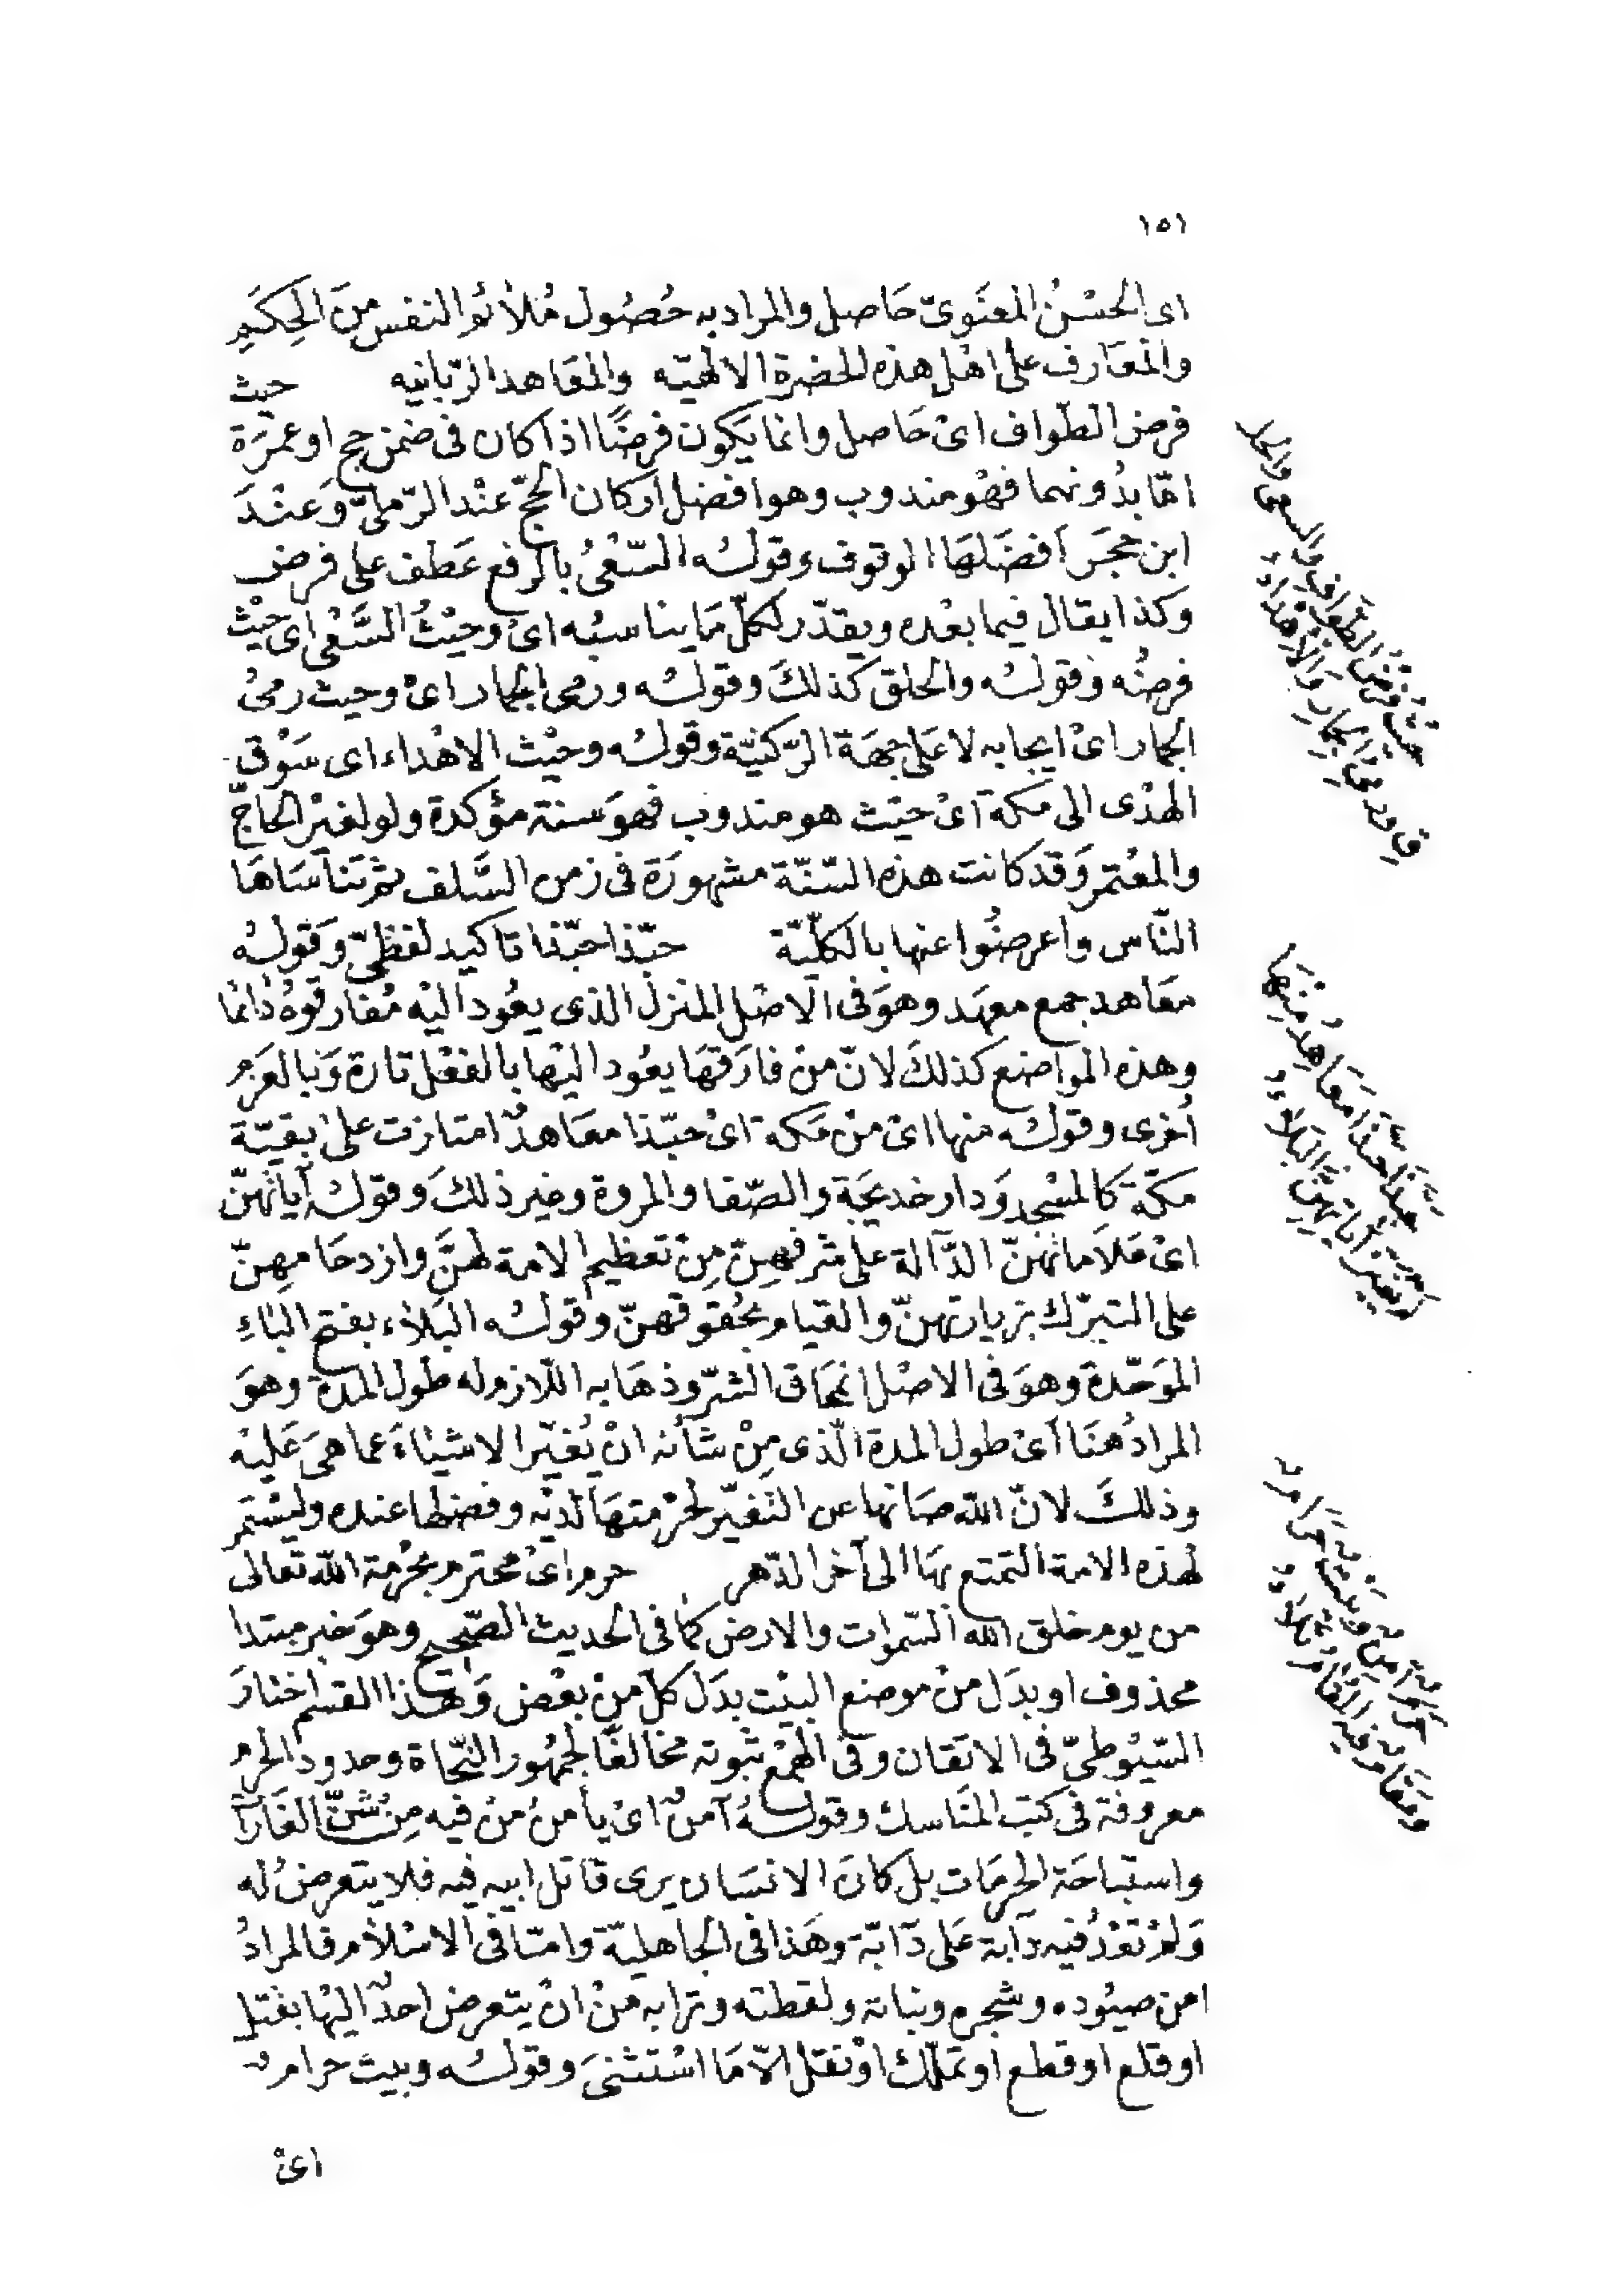 ١٥١
اى الحسْنُ المعنَوىّ حَاصل والمراد به حُصُول مُلائم النفس منَ الحِكَم
والمعَارف على اهْل هذه الحضرة الالهيّه والمعَاهد الرّبانيه حيث
فرض الطّواف اىْ حَاصل وانما يكون فرضًا اذا كان فى ضمن حج او عمرَة
امّا بدُونهما فهْو مندوب وهو افضل اركان الحجّ عنْد الرّملىّ وَعنْدَ
ابن حجَر أفضَلهَا الوقوف وقولُه السّعْىُ بالرفع عَطف على فرض
وكذا يقال فيما بعْده ويقدّر لكلّ مَا يناسبُه اىْ وحيْثُ السَّعْى اى حيْث
فرضُه وَقولُه والحلق كذلكَ وقولُه ورمى الجمار اىْ وحيث رمىُ
الجمار اىْ ايجابه لا عَلى جهَة الرّكنيّة وقولُه وحيْث الاهْداء اى سَوْق
الهدْى الى مكة اىْ حيْث هو مندوب فهوَ سنة مؤكدة ولو لغيْر الحاجّ
والمعْتمر وَقد كانت هذه السّنّة مشهورَة فى زمن السَّلف ثم تنَاسَاهَا
النّاس واعرضُوا عنها بالكلّيّة حبّذا حبّذا تاكيد لفظىّ وَقولُه
معَاهد جمع معهَد وهوَ فى الاصْل المنزل الذى يعُود اليْه مُفارقوهُ دائما
وهذه المواضع كذلكَ لانّ منْ فارَقهَا يعُود اليْها بالفعْل تارة وَبالعَزم
أخرى وقولُه منها اىْ منْ مَكة اىْ حبّذا معَاهدٌ امتازت علىْ بقيّة
مكّة كالمسْجد وَدار خديجَة والصّفا والمروة وغير ذلكَ وقولُه آياتهنّ
اىْ عَلامَاتهنّ الدّآلة على شرفهنّ مِنْ تعظيم الامة لهنَّ وازدحَامهِنّ
على التبرّك بزيارتهنّ والقيام بحُقوقهنّ وقولُه البَلاء بفتح البَاءِ
الموَحّدة وهوَ فى الاصْل انمحَاق الشئ وذهَابه اللّازم له طول المدة وهوَ
المرادُ هنَا أىْ طول المدة الّذى مِنْ شأنه انْ يُغيّر الاشيَاءَ عما هىَ عَليْه
وذلكَ لانّ اللّه صَانها عن التغيّر لحرْمتهَا لديْه وفضلها عنده وليسْتمر
لهذه الامة التمتع بهَا الى آخر الدّهر حرم اىْ محترم بحُرْمة اللّه تعَالى
من يوم خلق الله السّموات والارض كمَا فى الحديث الصّحيح وهوَ خبر مبتدا
محذوف او بدَل منْ موضع البيْت بدَل كلّ منْ بعْض وَهذا القسم اختارَ
السّيُوطىّ فى الاتقان وفى الهمْع ثبوته مخالفًا لجمْهُور النّحَاة وحدود الحرم
معروفة فى كتب المنَاسك وقولُهُ آمنٌ اىْ يأمنُ منْ فيه مِنْ شنّ الغَارَا
واستبَاحَة الحرمَات بل كانَ الانسَان يرى قَاتل ابيه فيه فلا يتعرضُ له
وَلمْ تعْدُ فيه دَابة عَلى دَآبّة وهَذا فى الجاهليّة وامّا فى الاسْلام فالمرادُ
امن صيُوده وشجره ونباته ولقطته وترابه منْ انْ يتعرض احدٌ اليْها بقتل
او قلع او قطع او تملّك اوْ نقل الاّ مَا اسْتثنىَ وقولُه وبيت حرامٌ
اىْ
حَيْثُ فرْضُ الطّوَافِ وَالسعى والحلـ
ـقِ ورمىُ الجمَارِ وَالْاِهْدَاءُ
حبّذا حبّذا معَاهِدُ مِنْهَا
لمْ يغيّر آيَاتهنَّ البَلَاءُ
حَرمٌ آمنٌ وَبيْتٌ حَرَامٌ
وَمقَامٌ فيْه المُقَامُ تلاءُ